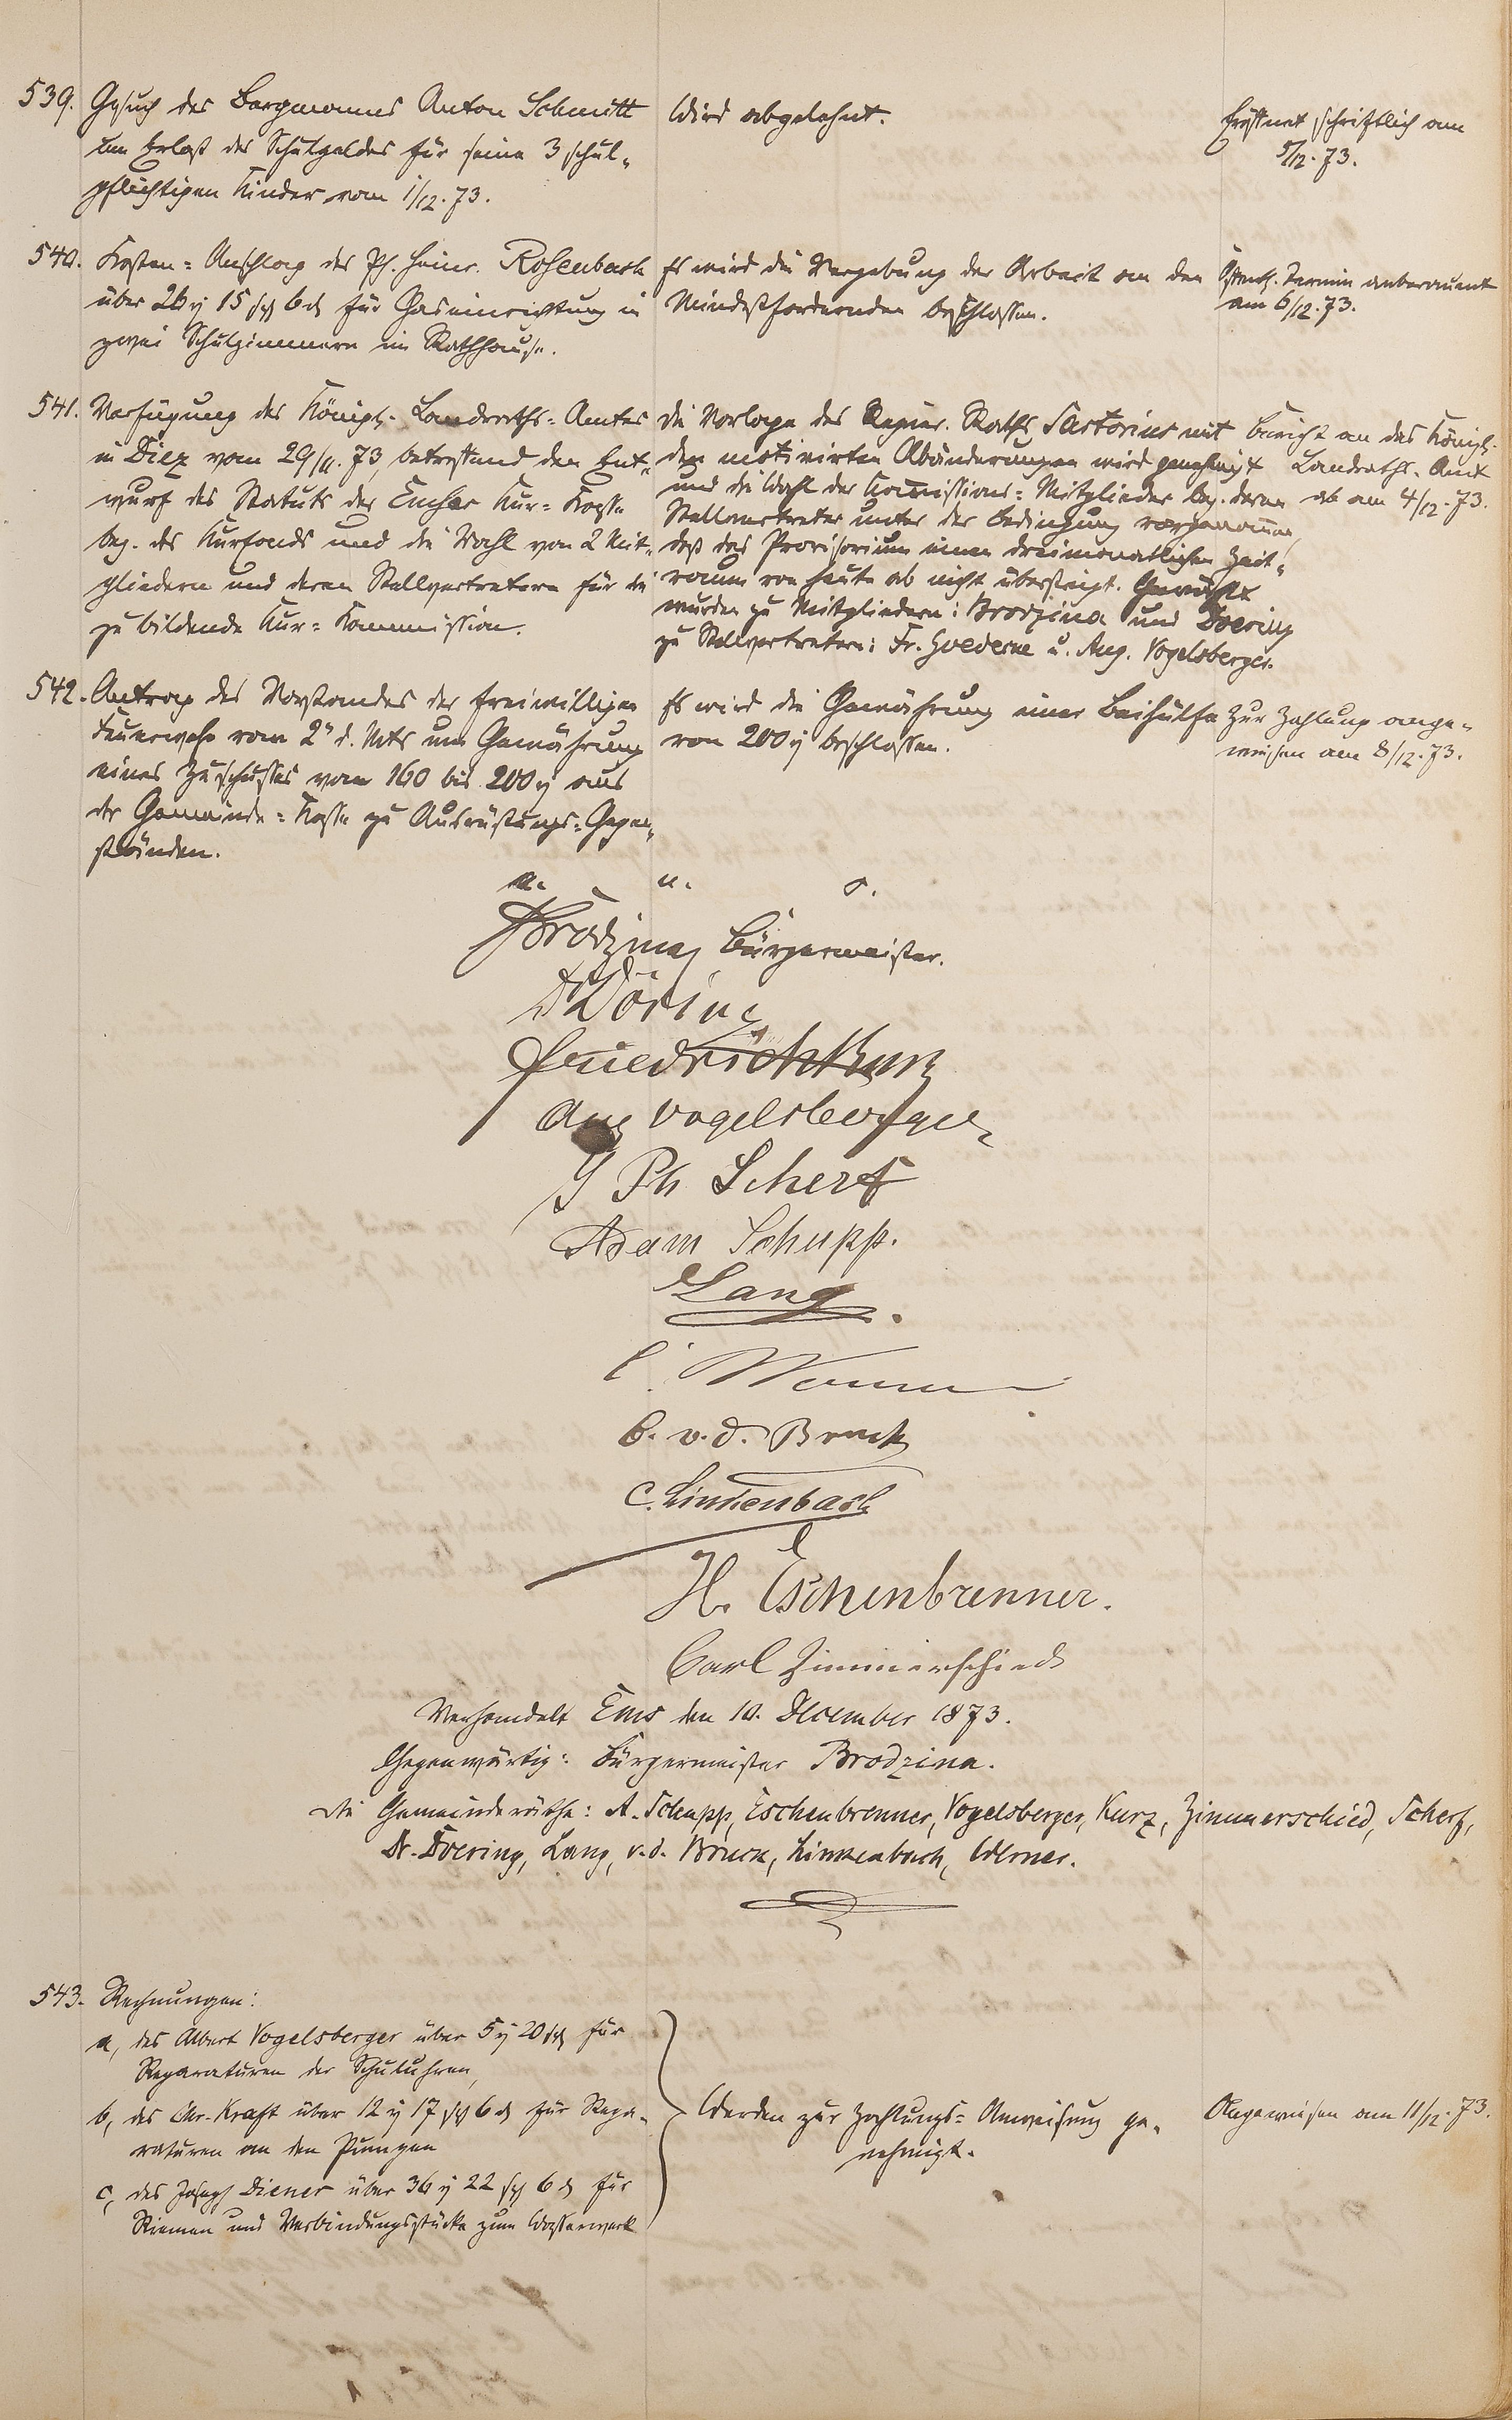 539. Gesuch des Bergmannes Anton Schmitt
um Erlaß des Schulgeldes für seine 3 schul-
pflichtigen Kinder vom 1/12. 73.
Wird abgelehnt.
Eröffnet schriftlich am
5/12. 73.
540. Kosten-Anschlag des Ph. Heinr. Rosenbach
über 26 15 Sgr 6 d für Gaseinrichtung in
zwei Schulzimmern im Rathhause.
Es wird die Vergebung der Arbeit an den
Mindestfordernden beschlossen.
Termin anberaumt
am 6/12. 73.
541. Verfügung des Königl. Landraths-Amtes
in Diez vom 29/11. 73, betreffend den Ent-
wurf des Statuts der Emser Kur-Kasse
bez. des Kurfonds und die Wahl von 2 Mit-
gliedern und deren Stellvertretern für die
zu bildende Kur-Kommission.
Die Vorlage des Regier. Raths Sartorius mit
den motivirten Abänderungen wird genehmigt
und die Wahl der Kommissions-Mitglieder bez. deren
Stellvertreter unter der Bedingung vorgenommen,
daß das Provisorium einen dreimonatlichen Zeit-
raum von heute ab nicht übersteigt. Gewählt
wurden zu Mitgliedern: Brodzina und Doering
zu Stellvertretern: Fr. u. Aug. Vogelsberger.
Bericht an das Königl.
Landraths-Amt
ab am 4/12. 73.
542. Antrag des Vorstandes der freiwilligen
Feuerwehr vom 2 d. Mts um Gewährung
eines Zuschusses vom 160 bis 200 aus
der Gemeinde-Kasse zu Ausrüstungs-Gegen-
ständen.
Es wird die Gewährung einer Beihülfe
von 200 beschlossen.
Zur Zahlung ange-
wiesen am 8/12. 73.
a. u. s.
Brodzina, Bürgermeister.
Dr Döring
Friedrich Kurz
Aug Vogelsberger
J Ph Scherf
Adam Schupp.
Lang.
C. Werner
C. v. d. Bruck
C. Linkenbach
H. Eschenbrenner.
Carl Zimmerschied
Verhandelt Ems den 10. December 1873.
Gegenwärtig: Bürgermeister Brodzina.
die Gemeinderäthe: A. Schupp, Eschenbrenner, Vogelsberger, Kurz, Zimmerschied, Scherf,
Dr. Doering, Lang, v. d. Bruck, Linkenbach, Werner.
543. Rechnungen:
a, des Albert Vogelsberger über 5 20 Sgr für
Reparaturen der Schuluhren,
b, des Chr. Kraft über 12 17 Sgr 6 d für Repa-
raturen an den Pumpen
c, des Joseph Diener über 36 22 Sgr 6 d für
Riemen und Verbindungsstücke zum Wasserwerk
Werden zur Zahlungs-Anweisung ge-
nehmigt.
Angewiesen am 11/12. 73.